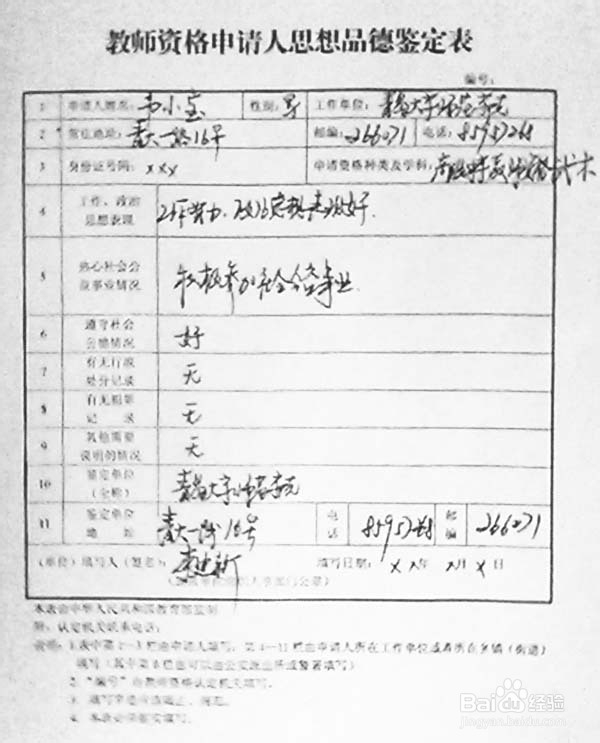 教师资格申请人思想品德鉴定表
编号:
1 申请人姓名: 韦小宝 性别: 男 工作单位: 青岛大学师范学院
2 常住地址: 16号 邮编: 266071 电话: 85953268
3 身份证号码: xxx 申请资格种类及学科:
4 工作、政治思想表现 工作努力、政治思想表现好.
5 热心社会公益事业情况 积极参加社会公益事业.
6 遵守社会公德情况 好
7 有无行政处分记录 无
8 有无犯罪记录 无
9 其他需要说明的情况 无
10 鉴定单位(全称) 青岛大学师范学院
11 鉴定单位地址 16号 电话 85953268 邮编 266071
(单位)填写人(签名): 填写日期: x x年 x月 x 日
本表由中华人民共和国教育部监制
附:认定机关联系电话:
说明: 1.表中第1—3栏由申请人填写,第4—11栏由申请人所在工作单位或者所在乡镇(街道)
填写(其中第8栏也可以由公安派出所或警署填写)
2."编号"由教师资格认定机关填写。
3.填写字迹应该端正、规范。
4.本表必须据实填写。
Baidu经验
jingyan.baidu.com